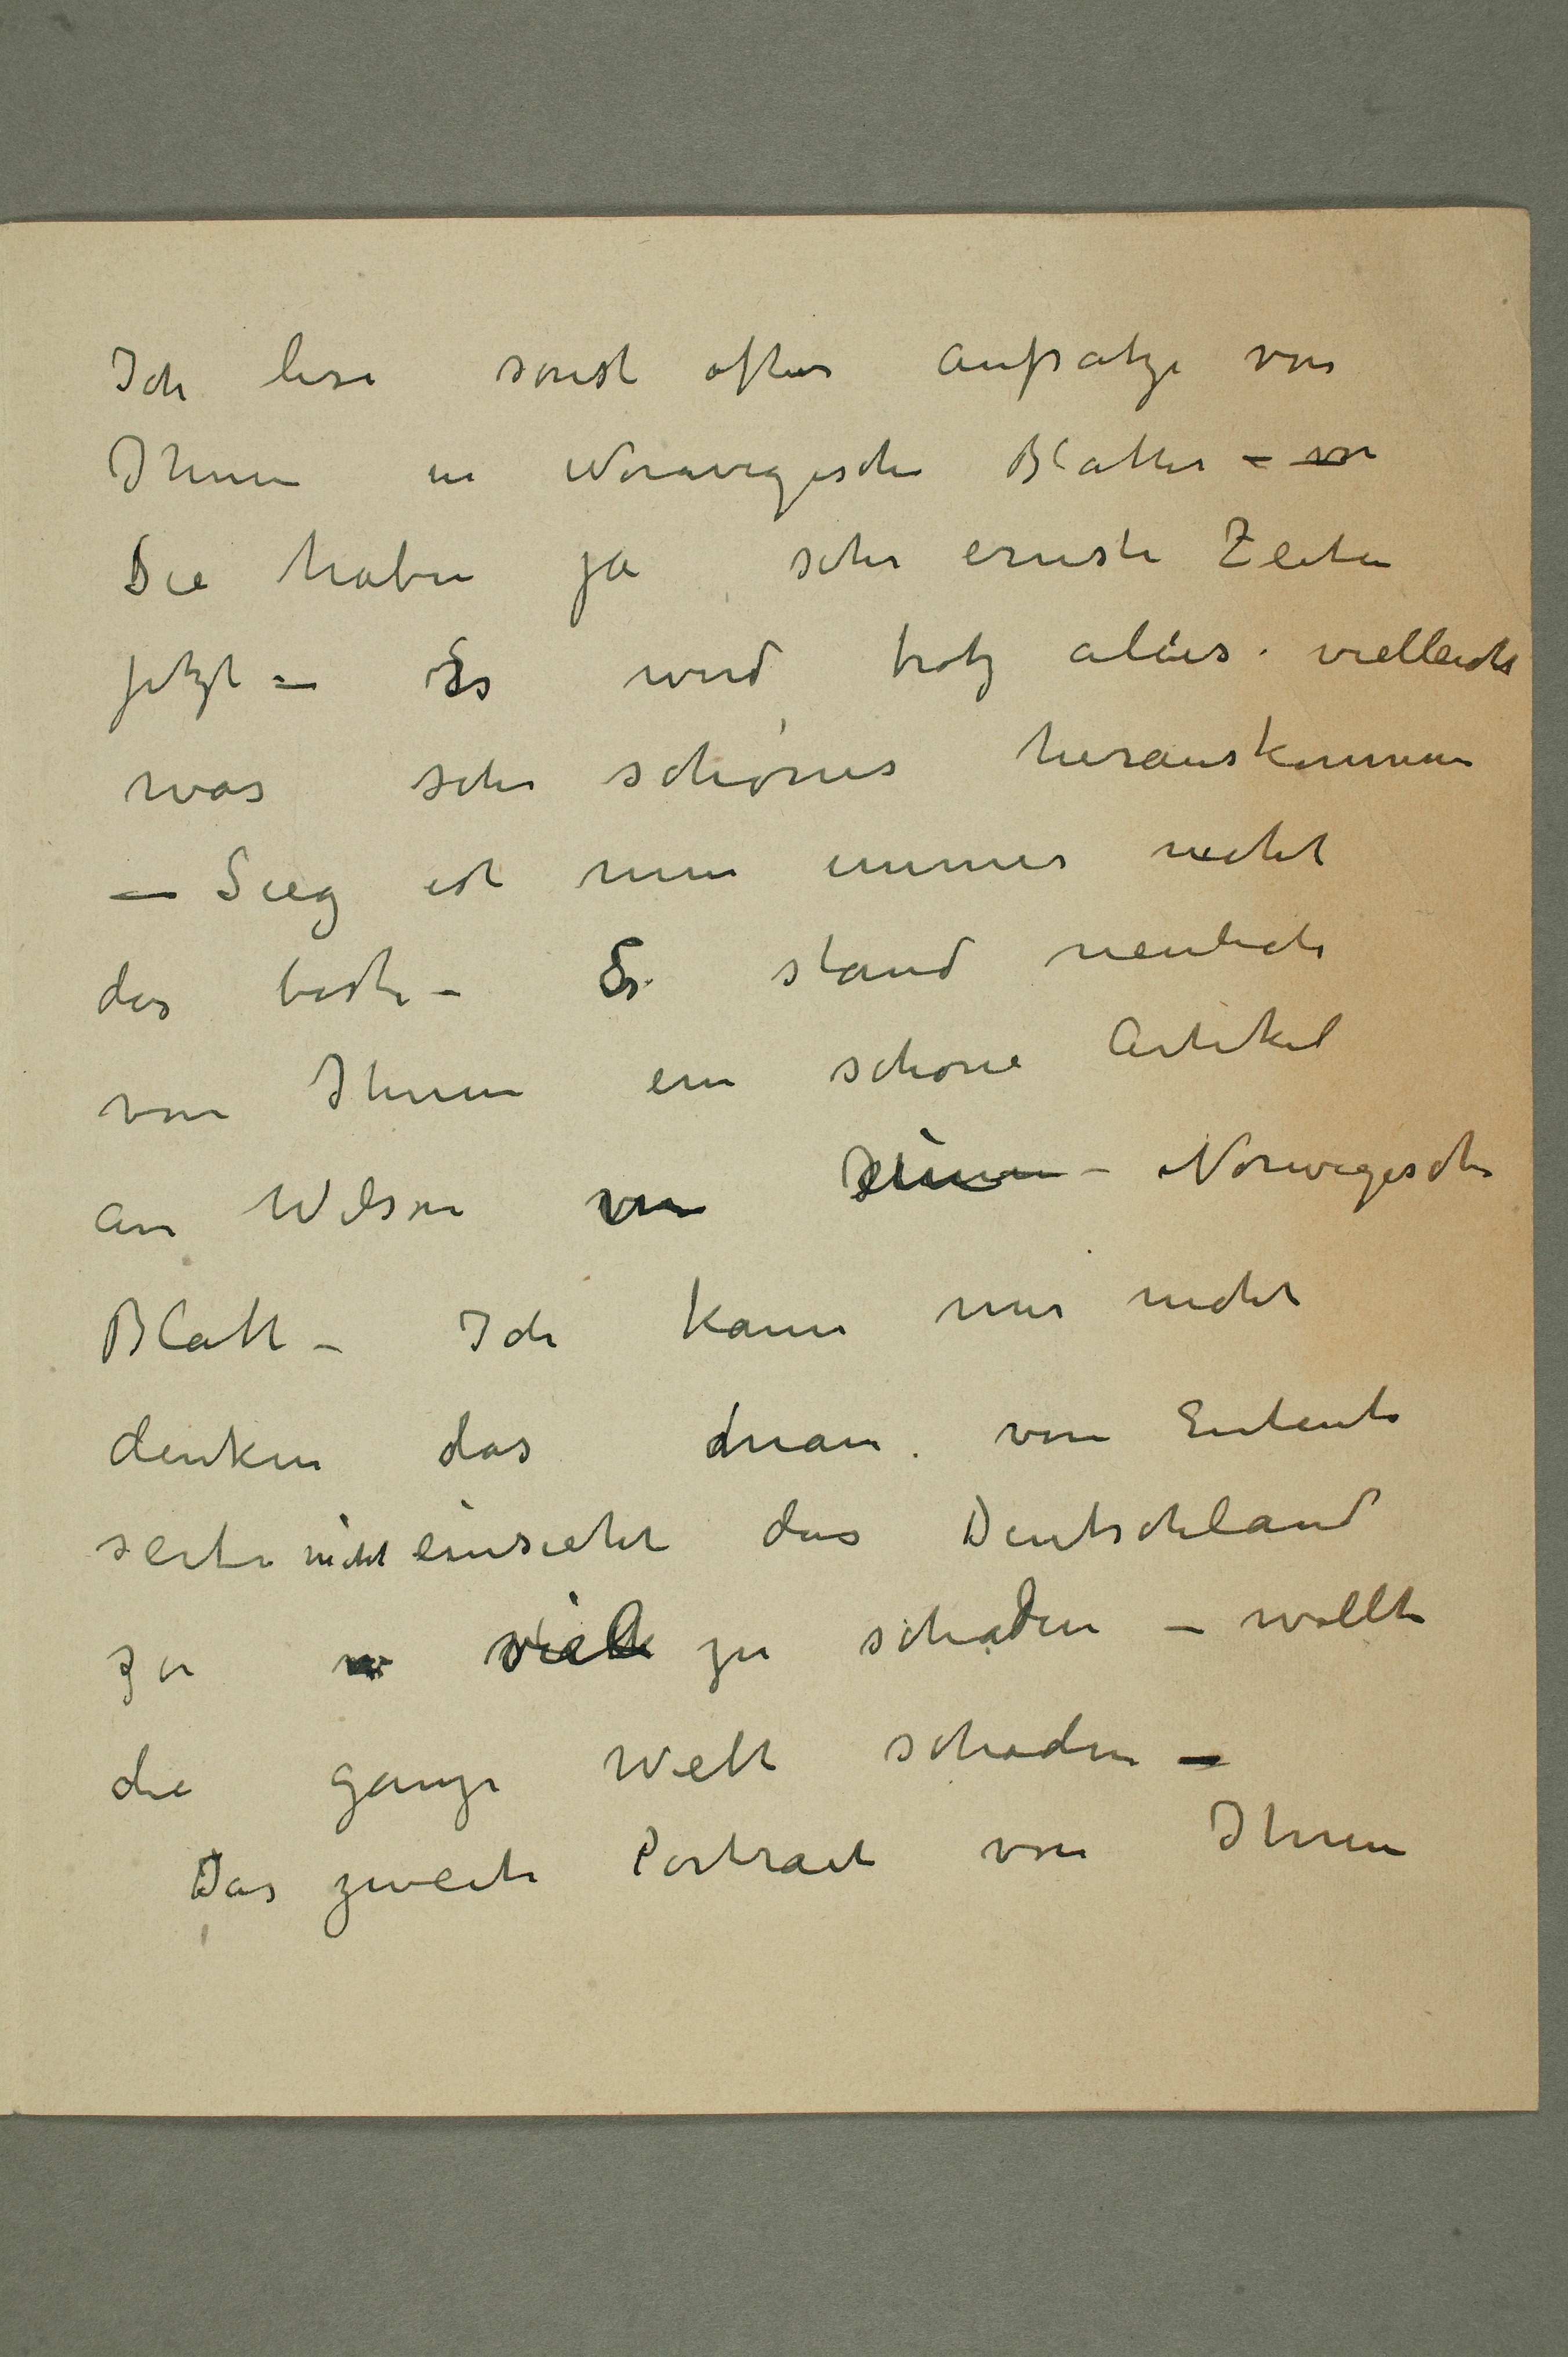 Ich lese sonst ofters Aufsatze von
Ihnen in Norwegische Blatter –
Sie haben ja sehr ernste Zeiten
jetzt – Es wird trotz alles vielleicht
was sehr schönes herauskommen
– Sieg ist nun immer nicht
das beste – Es stand neulich
von Ihnen ein schone Artikel
an Wilson in einem – Norwegische
Blatt – Ich kann mir nicht
denken das man von Entente
seite nicht einsieht das Deutschland
zu viel zu schaden – wollte
die ganze Welt schaden –
Das zweite Portrait von Ihnen